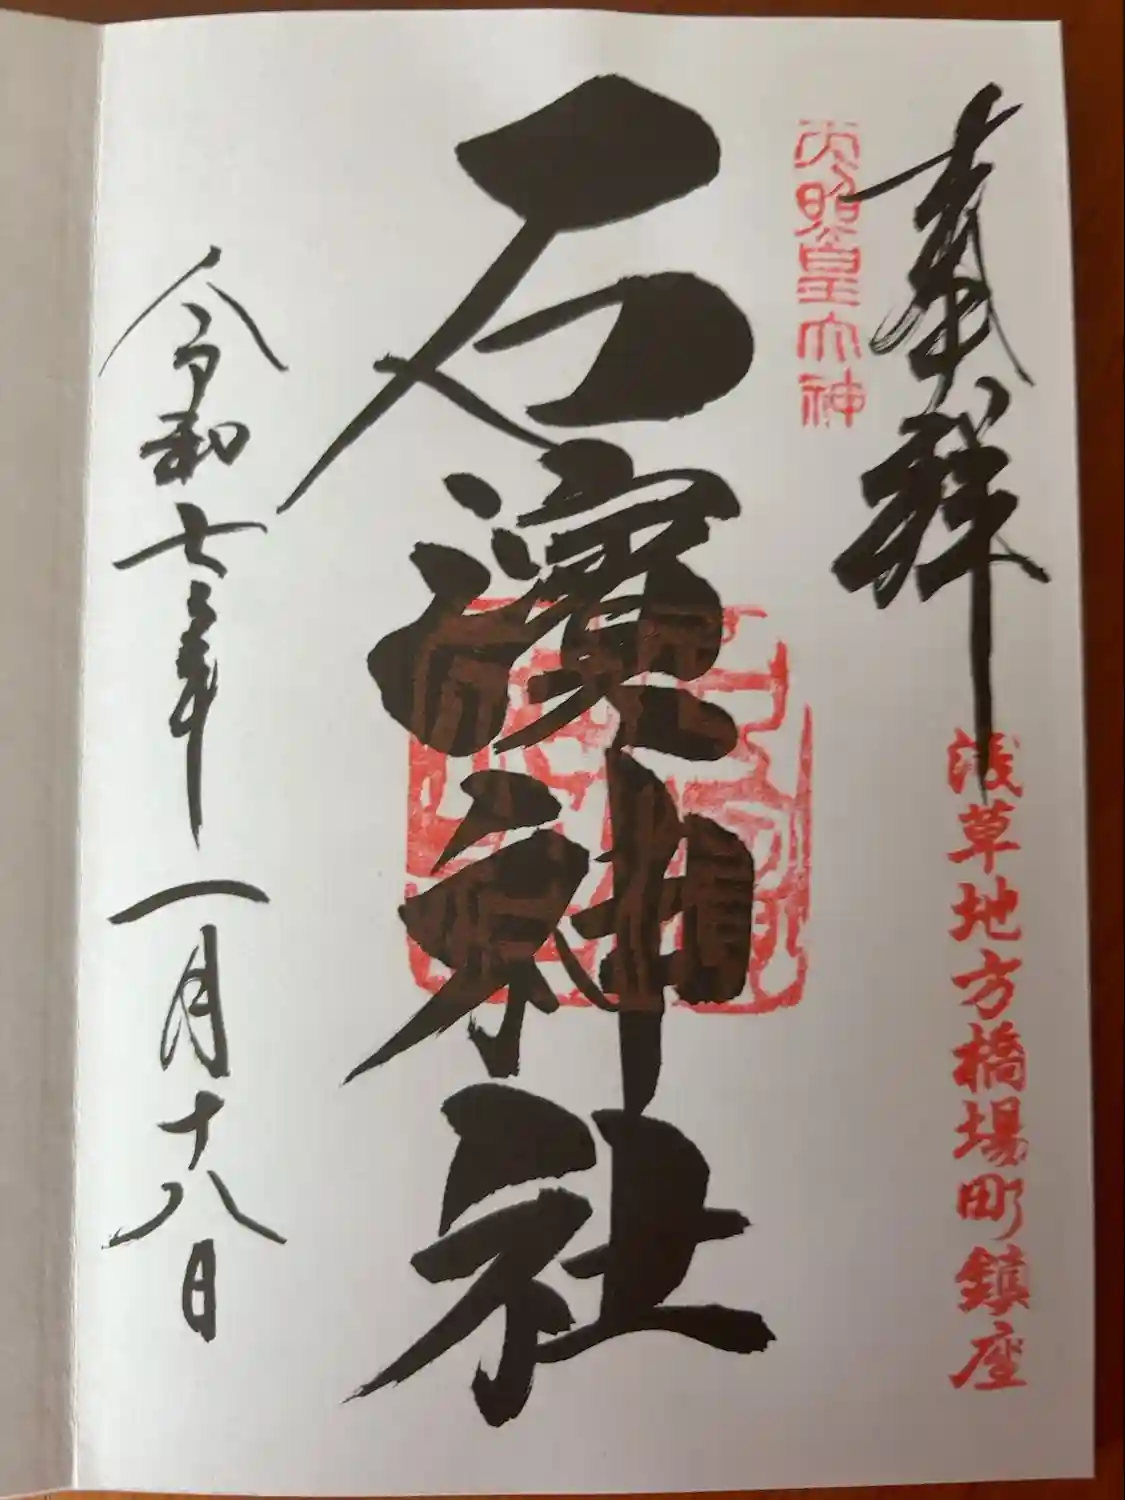 奉拝
浅草地方橋場町鎮座
天照皇大神
石濱神社
令和七年一月十八日